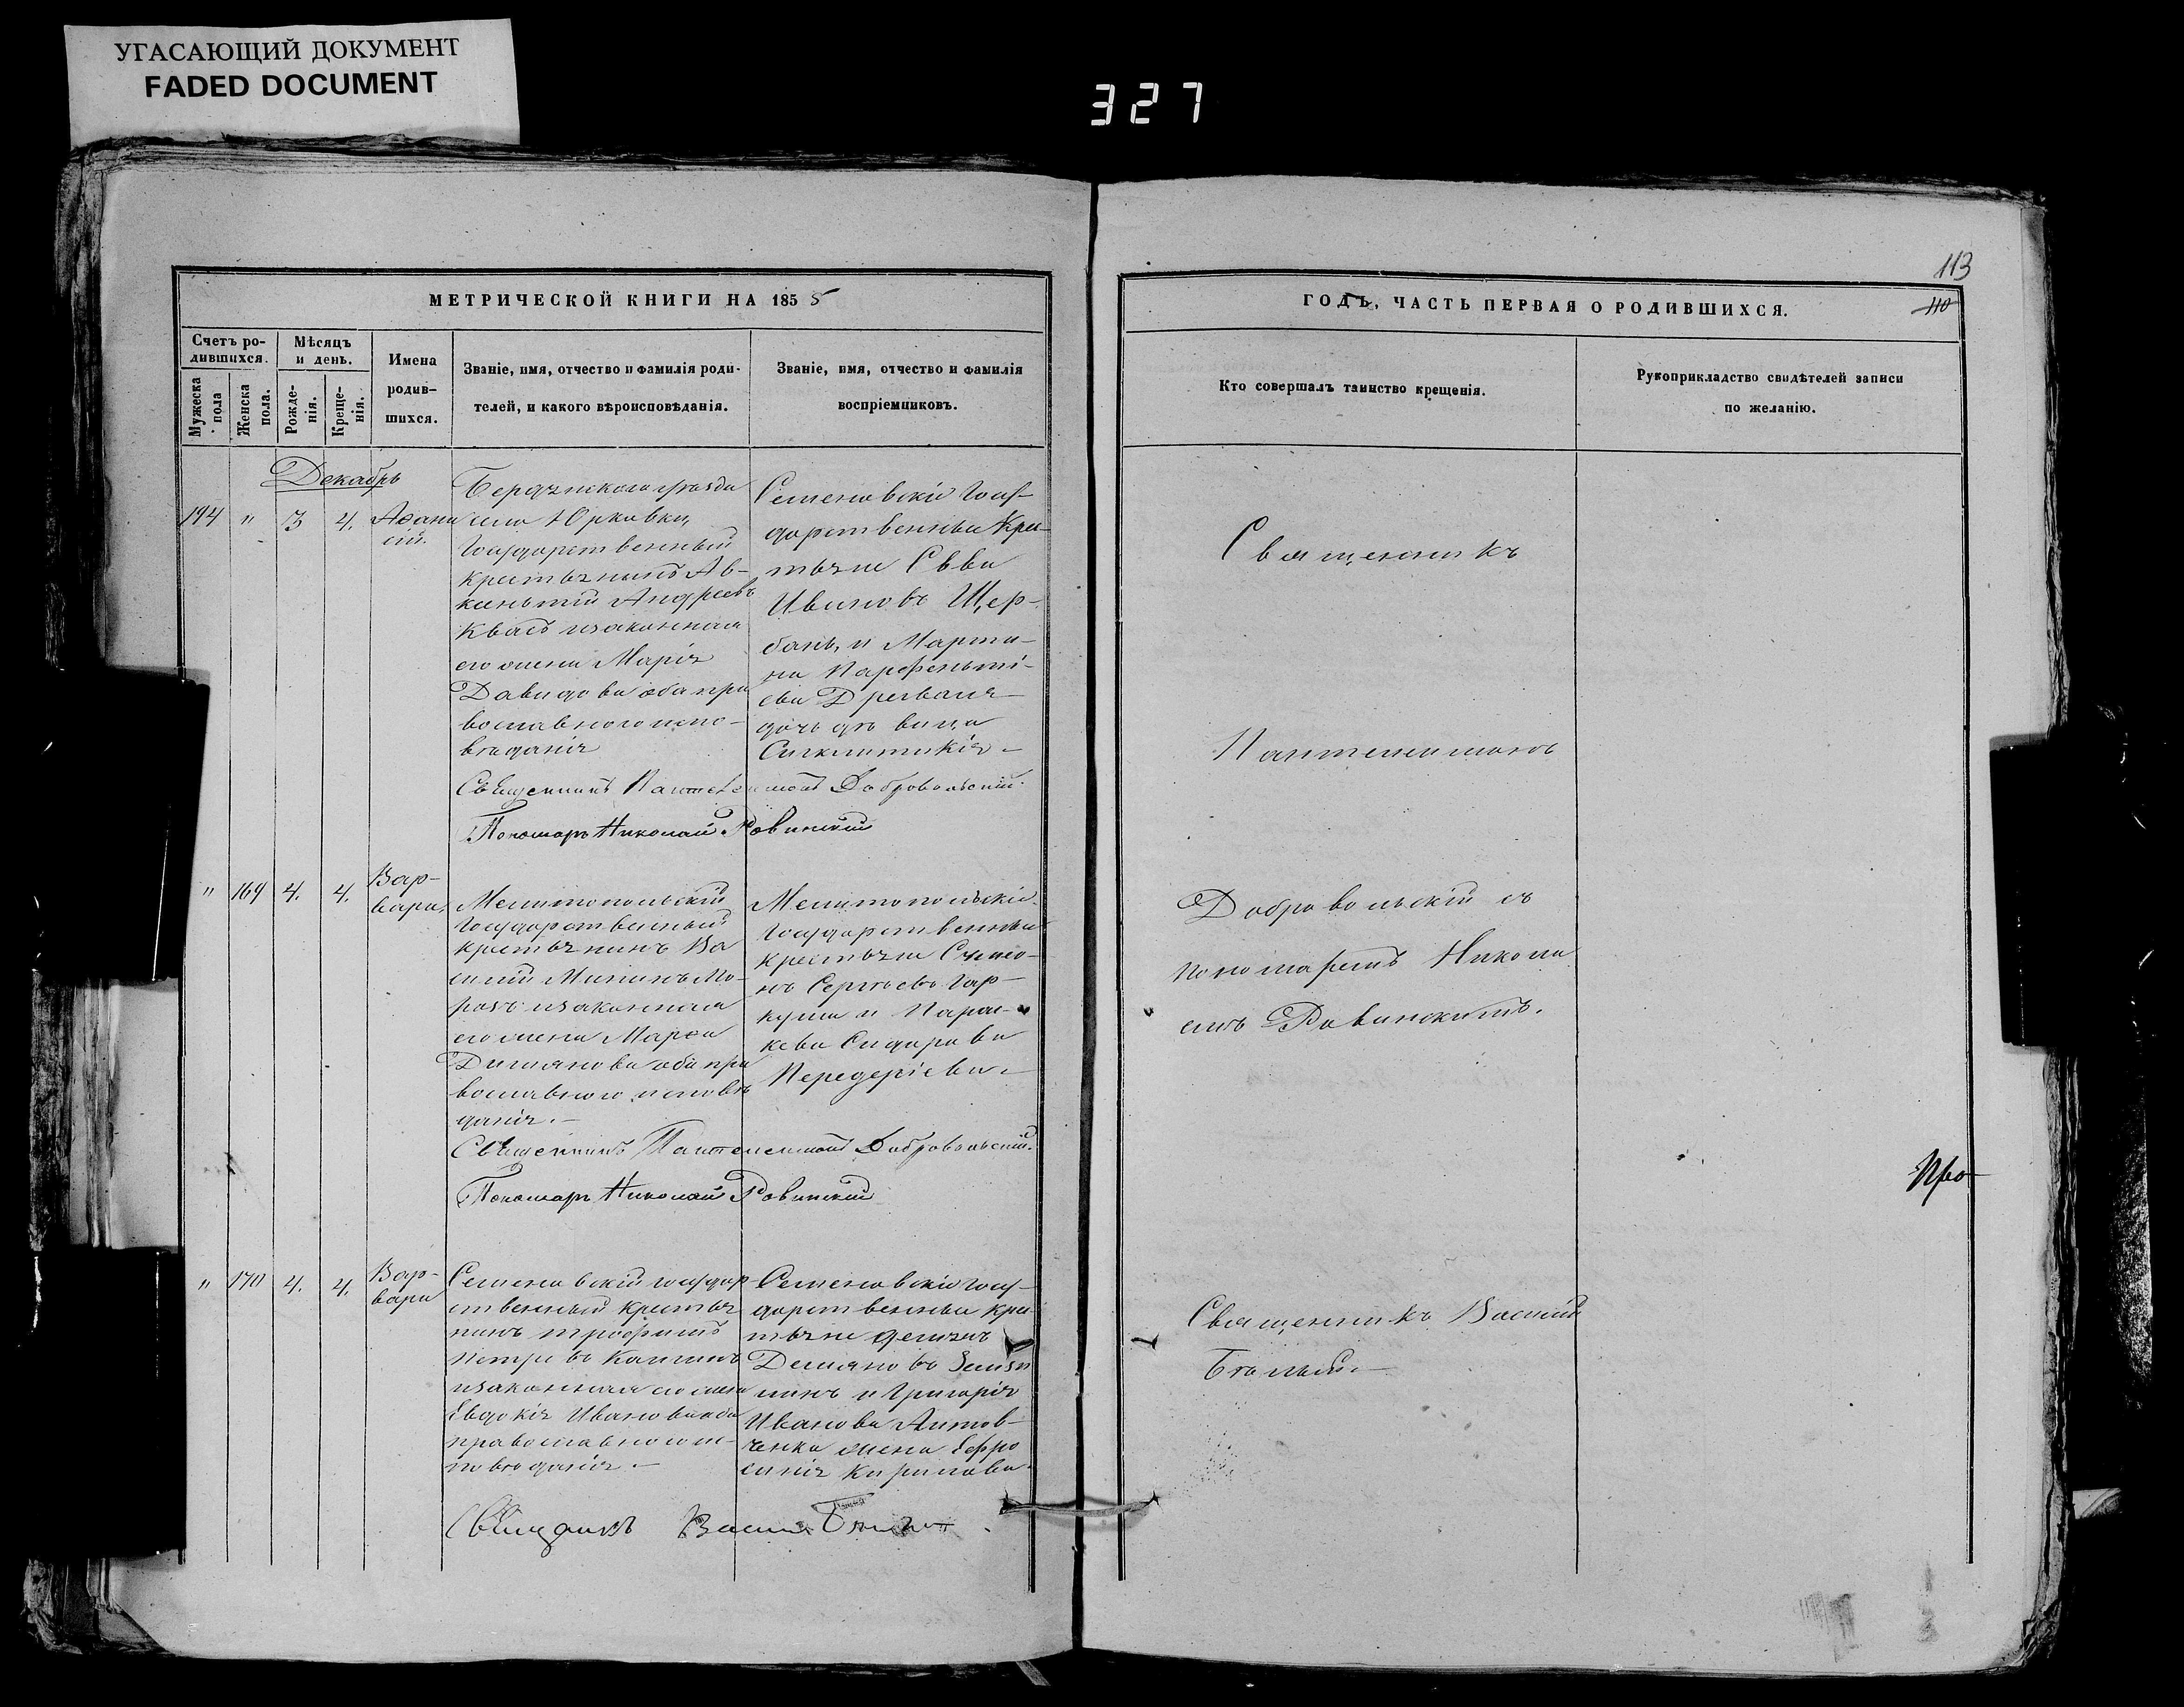 УГАСАЮЩИЙ ДОКУМЕНТ
FADED DOCUMENT
327
113
110
МЕТРИЧЕСКОЙ КНИГИ НА 1855
Счетъ ро-
дившихся.
Мужеска
пола
Женска
пола.
Мѣсяцъ
и день.
Рожде-
нія.
Креще-
нія.
Имена
родив-
шихся.
Званіе, имя, отчество и фамилія роди-
телей, и какого вѣроисповѣданія.
Званіе, имя, отчество и фамилія
воспріемниковъ.
Декабрь
194 " 3 4. Аѳана
сій.
Бердянскаго уѣзда
села Юрковки,
Государственный
крестьянинъ Ав-
ксентій Андреевъ
Квасъ и законная
его жена Марія
Давидова оба пра
вославного испо-
вѣданія
Семеновскіе Госу-
дарственные Кре-
стьяне Савва
Ивановъ Щер-
бань, и Марти-
на Парфентьі-
ева
дочь дѣвица
Синклитикія
Священникъ Пантелеимонъ Добровольскій.
Пономарь Николай Ровинскій
" 169 4. 4. Вар-
вара.
Мелитопольскій
Государственный
крестьянинъ Ва
силій Мининъ Мо-
розъ и законная
его жена Марѳа
Демянова оба пра
вославного исповѣ
данія.
Мелитопольскіе
Государственные
крестьяне Симео-
нъ Сергѣевъ Гар-
куша и Парас-
кева Сидорова
Передеріева.
Священникъ Пантелеимонъ Добровольскій.
Пономарь Николай Ровинскій
" 170 4. 4. Вар-
вара
Семеновскій государ-
ственный крестья
нинъ Трофимъ
Петровъ
и законная его жена
Евдокія Иванова оба
православного ис-
повѣданія.
Семеновскіе Госу-
дарственные кре-
стьяне Демянъ
Демяновъ
и Григорія
Иванова Литов-
ченка жена Ефро
синія Кирилова.
Священникъ Василій Бѣлый
ГОДЪ, ЧАСТЬ ПЕРВАЯ О РОДИВШИХСЯ.
Кто совершалъ таинство крещенія.
Рукоприкладство свидѣтелей записи
по желанію.
Священникъ
Пантелеимонъ
Добровольскій съ
пономаремъ Никола
емъ Ровинскимъ.
Про-
Священникъ Василій
Бѣлый.